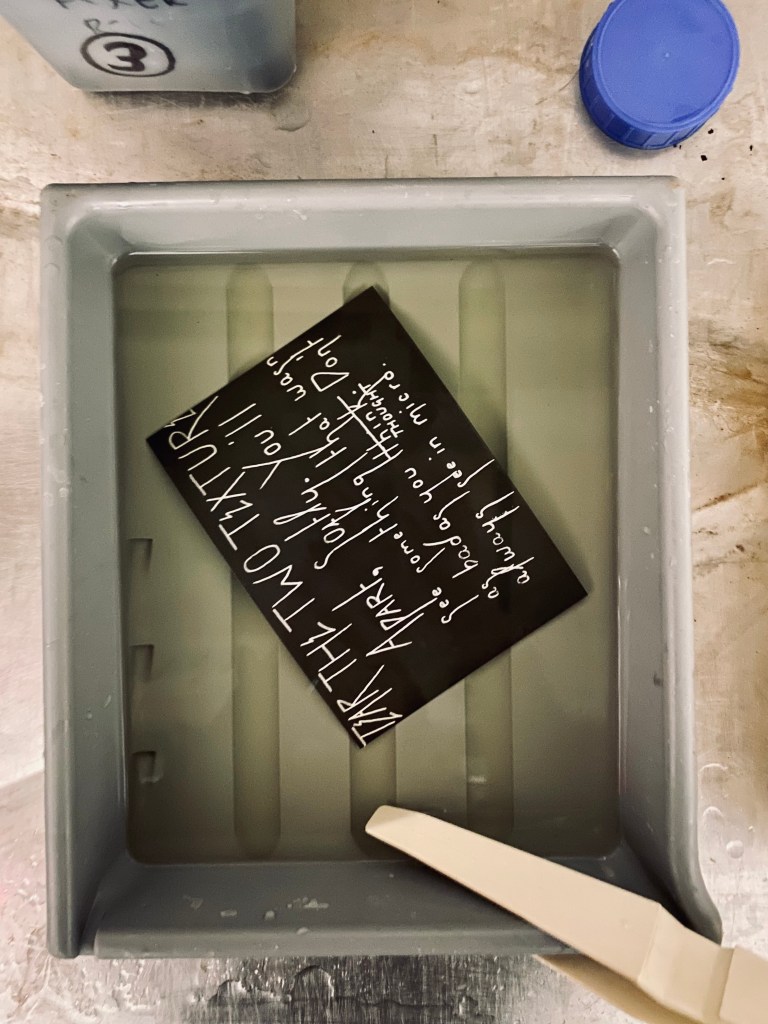 FIXER
3
TEAR THE TWO TEXTURES
APART, softly. You'll
see something that wasn't
as bad as you think. Don't
THOUGHT
always see in micro.